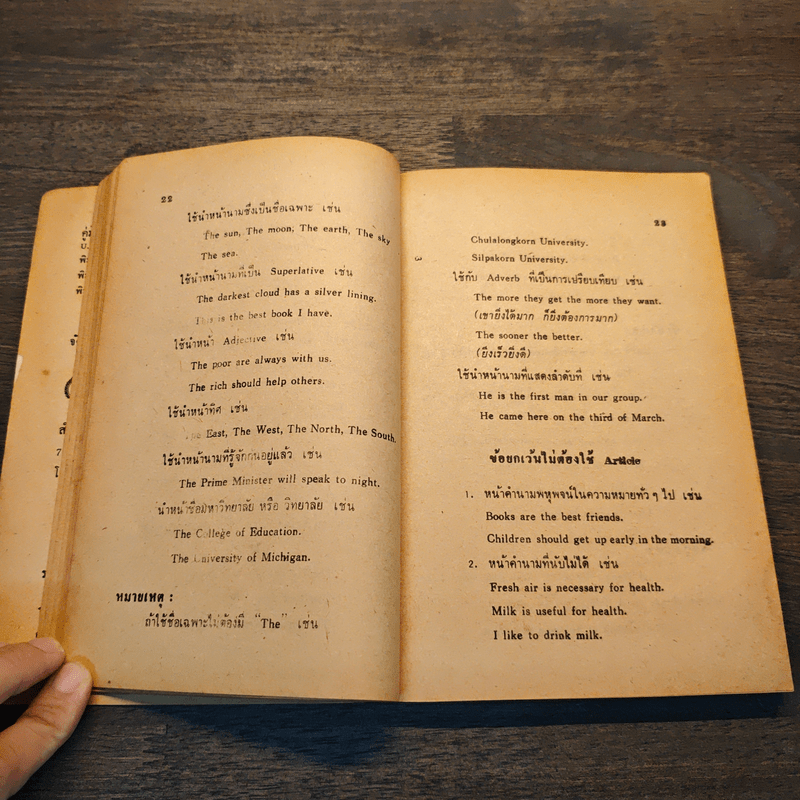 22
ใช้นำหน้านามซึ่งเป็นชื่อเฉพาะ เช่น
The sun, The moon, The earth, The sky
The sea.
ใช้นำหน้านามที่เป็น Superlative เช่น
The darkest cloud has a silver lining.
This is the best book I have.
ใช้นำหน้า Adjective เช่น
The poor are always with us.
The rich should help others.
ใช้นำหน้าทิศ เช่น
The East, The West, The North, The South.
ใช้นำหน้านามที่รู้จักกันอยู่แล้ว เช่น
The Prime Minister will speak to night.
นำหน้าชื่อมหาวิทยาลัย หรือ วิทยาลัย เช่น
The College of Education.
The University of Michigan.
หมายเหตุ :
ถ้าใช้ชื่อเฉพาะไม่ต้องมี "The" เช่น
23
Chulalongkorn University.
Silpakorn University.
ใช้กับ Adverb ที่เป็นการเปรียบเทียบ เช่น
The more they get the more they want.
(เขายิ่งได้มาก ก็ยิ่งต้องการมาก)
The sooner the better.
(ยิ่งเร็วยิ่งดี)
ใช้นำหน้านามที่แสดงลำดับที่ เช่น
He is the first man in our group.
He came here on the third of March.
ข้อยกเว้นไม่ต้องใช้ Article
1. หน้าคำนามพหุพจน์ในความหมายทั่ว ๆ ไป เช่น
Books are the best friends.
Children should get up early in the morning.
2. หน้าคำนามที่นับไม่ได้ เช่น
Fresh air is necessary for health.
Milk is useful for health.
I like to drink milk.